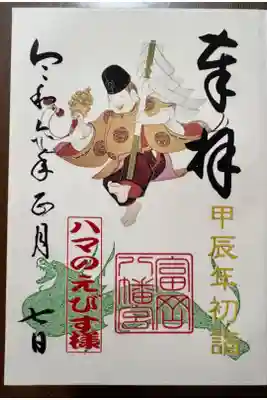 奉拝
甲辰年 初詣
富岡
八幡宮
ハマのえびす様
令和六年正月七日